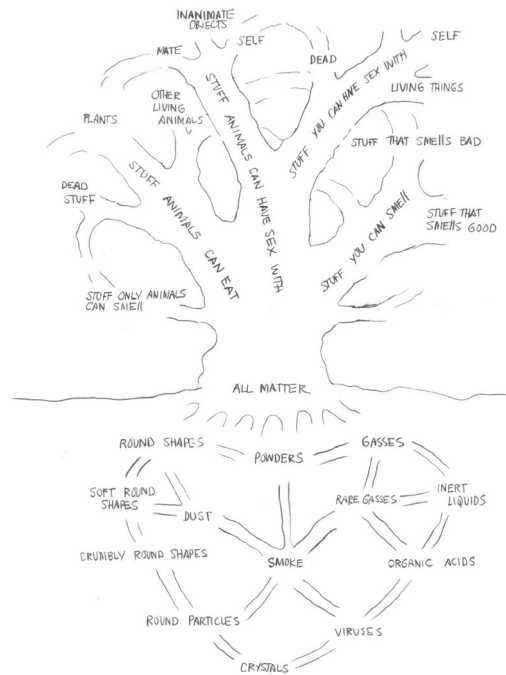 INANIMATE
OBJECTS
MATE
SELF
DEAD
SELF
LIVING THINGS
OTHER
LIVING
ANIMALS
PLANTS
DEAD
STUFF
STUFF ANIMALS CAN EAT
STUFF ANIMALS CAN HAVE SEX WITH
STUFF YOU CAN HAVE SEX WITH
STUFF THAT SMELLS BAD
STUFF YOU CAN SMELL
STUFF THAT
SMELLS GOOD
STUFF ONLY ANIMALS
CAN SMELL
ALL MATTER
ROUND SHAPES
POWDERS
GASSES
SOFT ROUND
SHAPES
DUST
RARE GASSES
INERT
LIQUIDS
CRUMBLY ROUND SHAPES
SMOKE
ORGANIC ACIDS
ROUND PARTICLES
VIRUSES
CRYSTALS